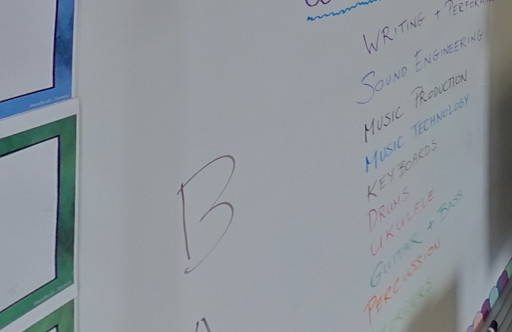 WRITING + PERFORMA
SOUND ENGINEERING
MUSIC PRODUCTION
MUSIC TECHNOLOGY
KEYBOARDS
DRUMS
UKULELE
GUITAR + BASS
PERCUSSION
B